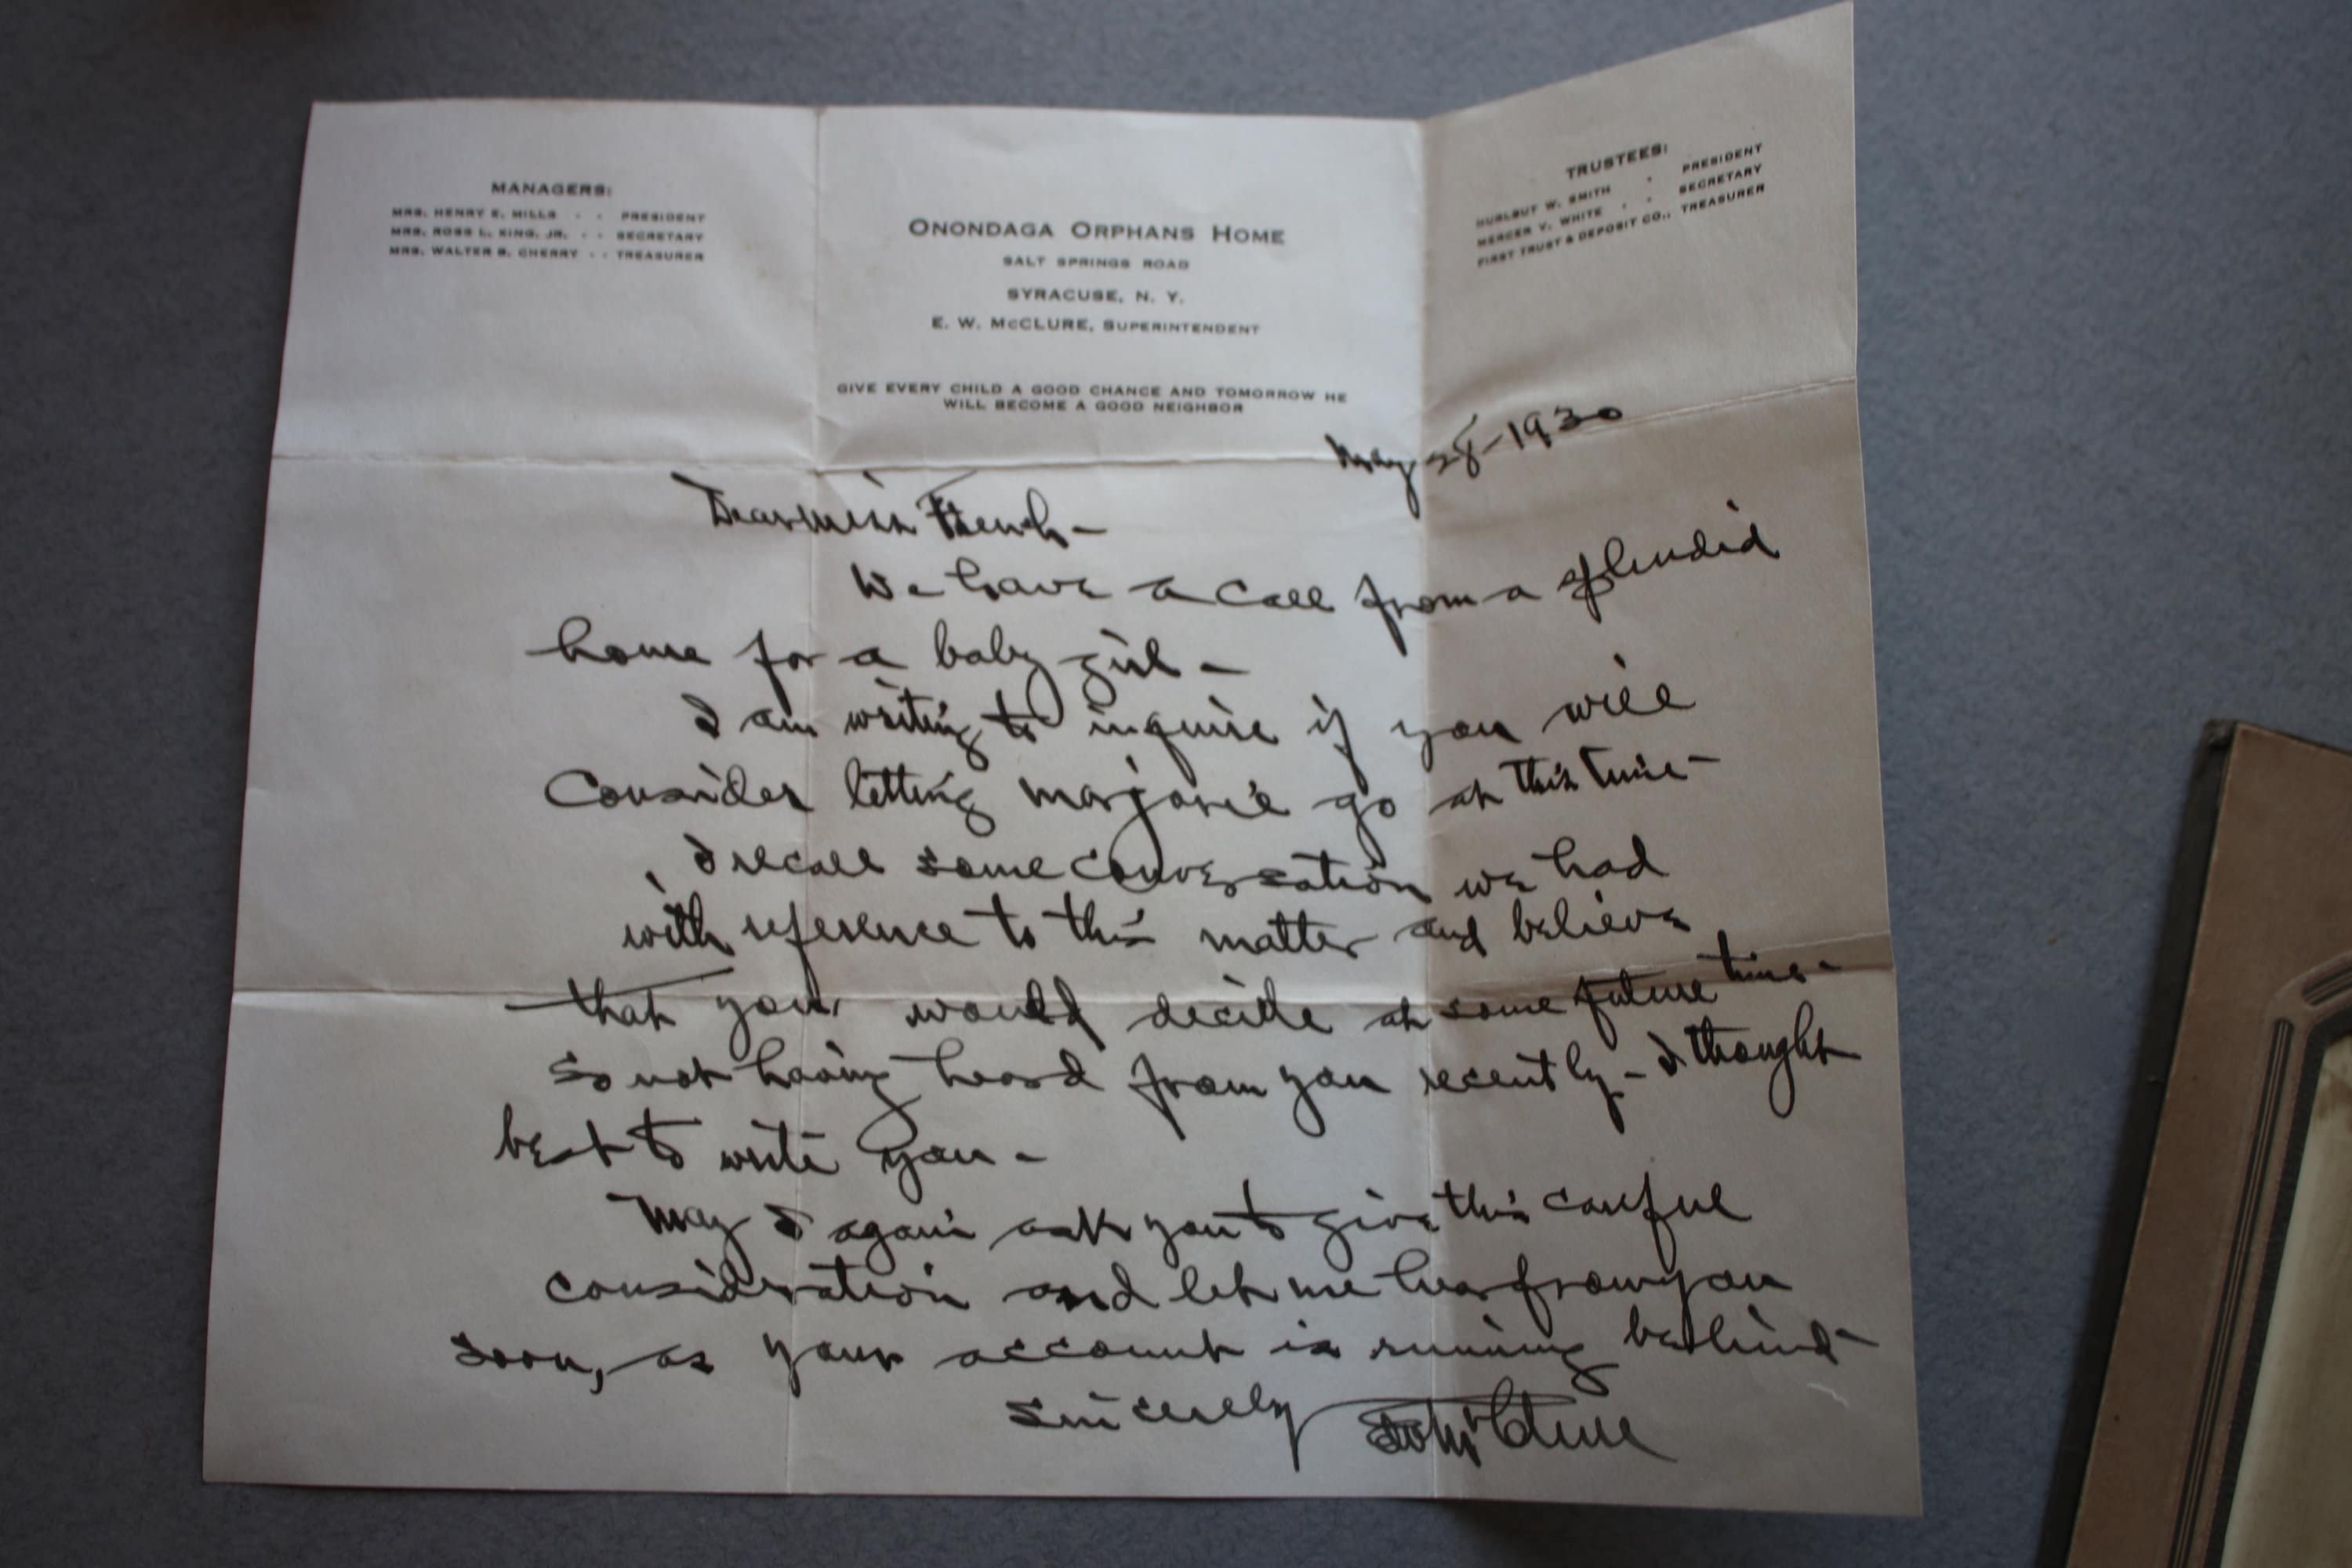 MANAGERS:
MRS. HENRY E. MILLS - - PRESIDENT
MRS. ROSS L. KING, JR. - - SECRETARY
MRS. WALTER B. CHERRY - - TREASURER
ONONDAGA ORPHANS HOME
SALT SPRINGS ROAD
SYRACUSE, N. Y.
E. W. McCLURE, SUPERINTENDENT
GIVE EVERY CHILD A GOOD CHANCE AND TOMORROW HE
WILL BECOME A GOOD NEIGHBOR
TRUSTEES:
HURLBUT W. SMITH - PRESIDENT
MERCER V. WHITE - - SECRETARY
FIRST TRUST & DEPOSIT CO., TREASURER
May 28-1930
Dear Miss French-
We have a call from a splendid
home for a baby girl-
I am writing to inquire if you will
consider letting Marjorie go at this time-
I recall some conversation we had
with reference to this matter and believe
that you would decide at some future time-
So not having heard from you recently- I thought
best to write you-
May I again ask you to give this careful
consideration and let me hear from you
soon, as your account is running behind-
Sincerely EW McClure